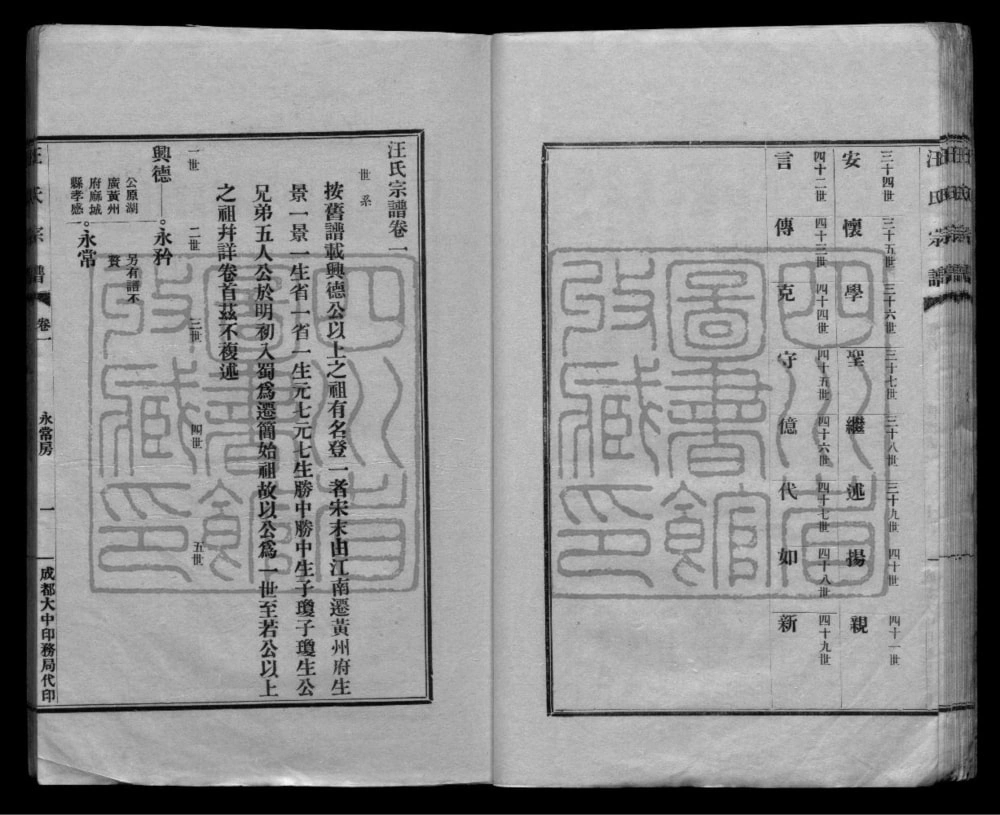 汪氏宗譜
三十四世
安
三十五世
懷
三十六世
學
三十七世
聖
三十八世
繼
三十九世
述
四十世
揚
四十一世
親
四十二世
言
四十三世
傳
四十四世
克
四十五世
守
四十六世
億
四十七世
代
四十八世
如
四十九世
新
四川省
圖書館
收藏印
汪氏宗譜卷一
世系
按舊譜載興德公以上之祖有名登一者宋末由江南遷黃州府生
景一景一生省一省一生元七元七生勝中勝中生子瓊子瓊生公
兄弟五人公於明初入蜀爲遷簡始祖故以公爲一世至若公以上
之祖幷詳卷首茲不複述
一世
二世
三世
四世
五世
興德
永矜
公原湖
廣黃州
府麻城
縣孝感
另有譜不
贅
永常
汪氏宗譜
卷一
永常房
一
成都大中印務局代印
四川省
圖書館
收藏印